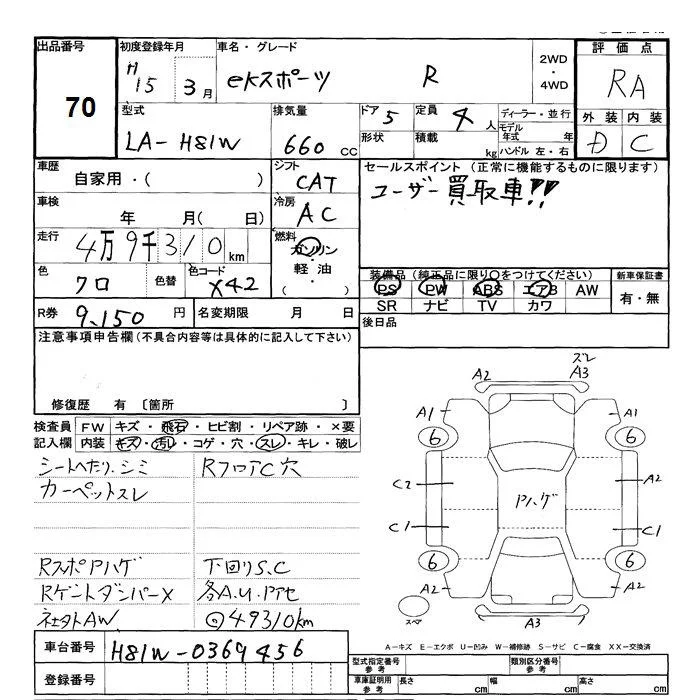 出品番号 初度登録年月 車名・グレード 2WD 評価点
70 H15 3月 eKスポーツ R ・ 4WD RA
型式 排気量 ドア 5 定員 4人 ディーラー・並行 外装 内装
LA-H81W 660cc 形状 積載 kg モデル年式 年 D C
ハンドル 左・右
車歴 シフト セールスポイント (正常に機能するものに限ります)
自家用・( ) CAT ユーザー買取車!!
車検 冷房
年 月(日) AC
走行 4万9千310km 燃料 ガソリン・軽油・( )
色 クロ 色替 色コード X42 装備品(純正品に限り○をつけてください) 新車保証書
PS PW ABS エアB AW 有・無
SR ナビ TV カワ
R券 9,150円 名変期限 月 日 後日品
注意事項申告欄(不具合内容等は具体的に記入して下さい)
修復歴 有 〔箇所 〕
検査員記入欄 FW キズ・飛石・ヒビ割・リペア跡・×要
内装 キズ・汚レ・コゲ・穴・スレ・キレ・破レ
シートヘたり、シミ RフロアC穴
カーペットスレ
RスポPハゲ 下回りS,C
RゲートダンパーX 各A.U.Pアセ
ネジタトAW ◎49310km
車台番号 H81W-0369456
登録番号
ズレ
A2 A3
A1 A1
6 6
C2 Pハゲ A2
C1 C1
6 6
A2 A2
スペア A3
A-キズ E-エクボ U-凹み W-補修跡 S-サビ C-腐食 XX-交換済
型式指定番号 参考 類別区分番号 参考
車庫証明用 参考 長さ cm 幅 cm 高さ cm